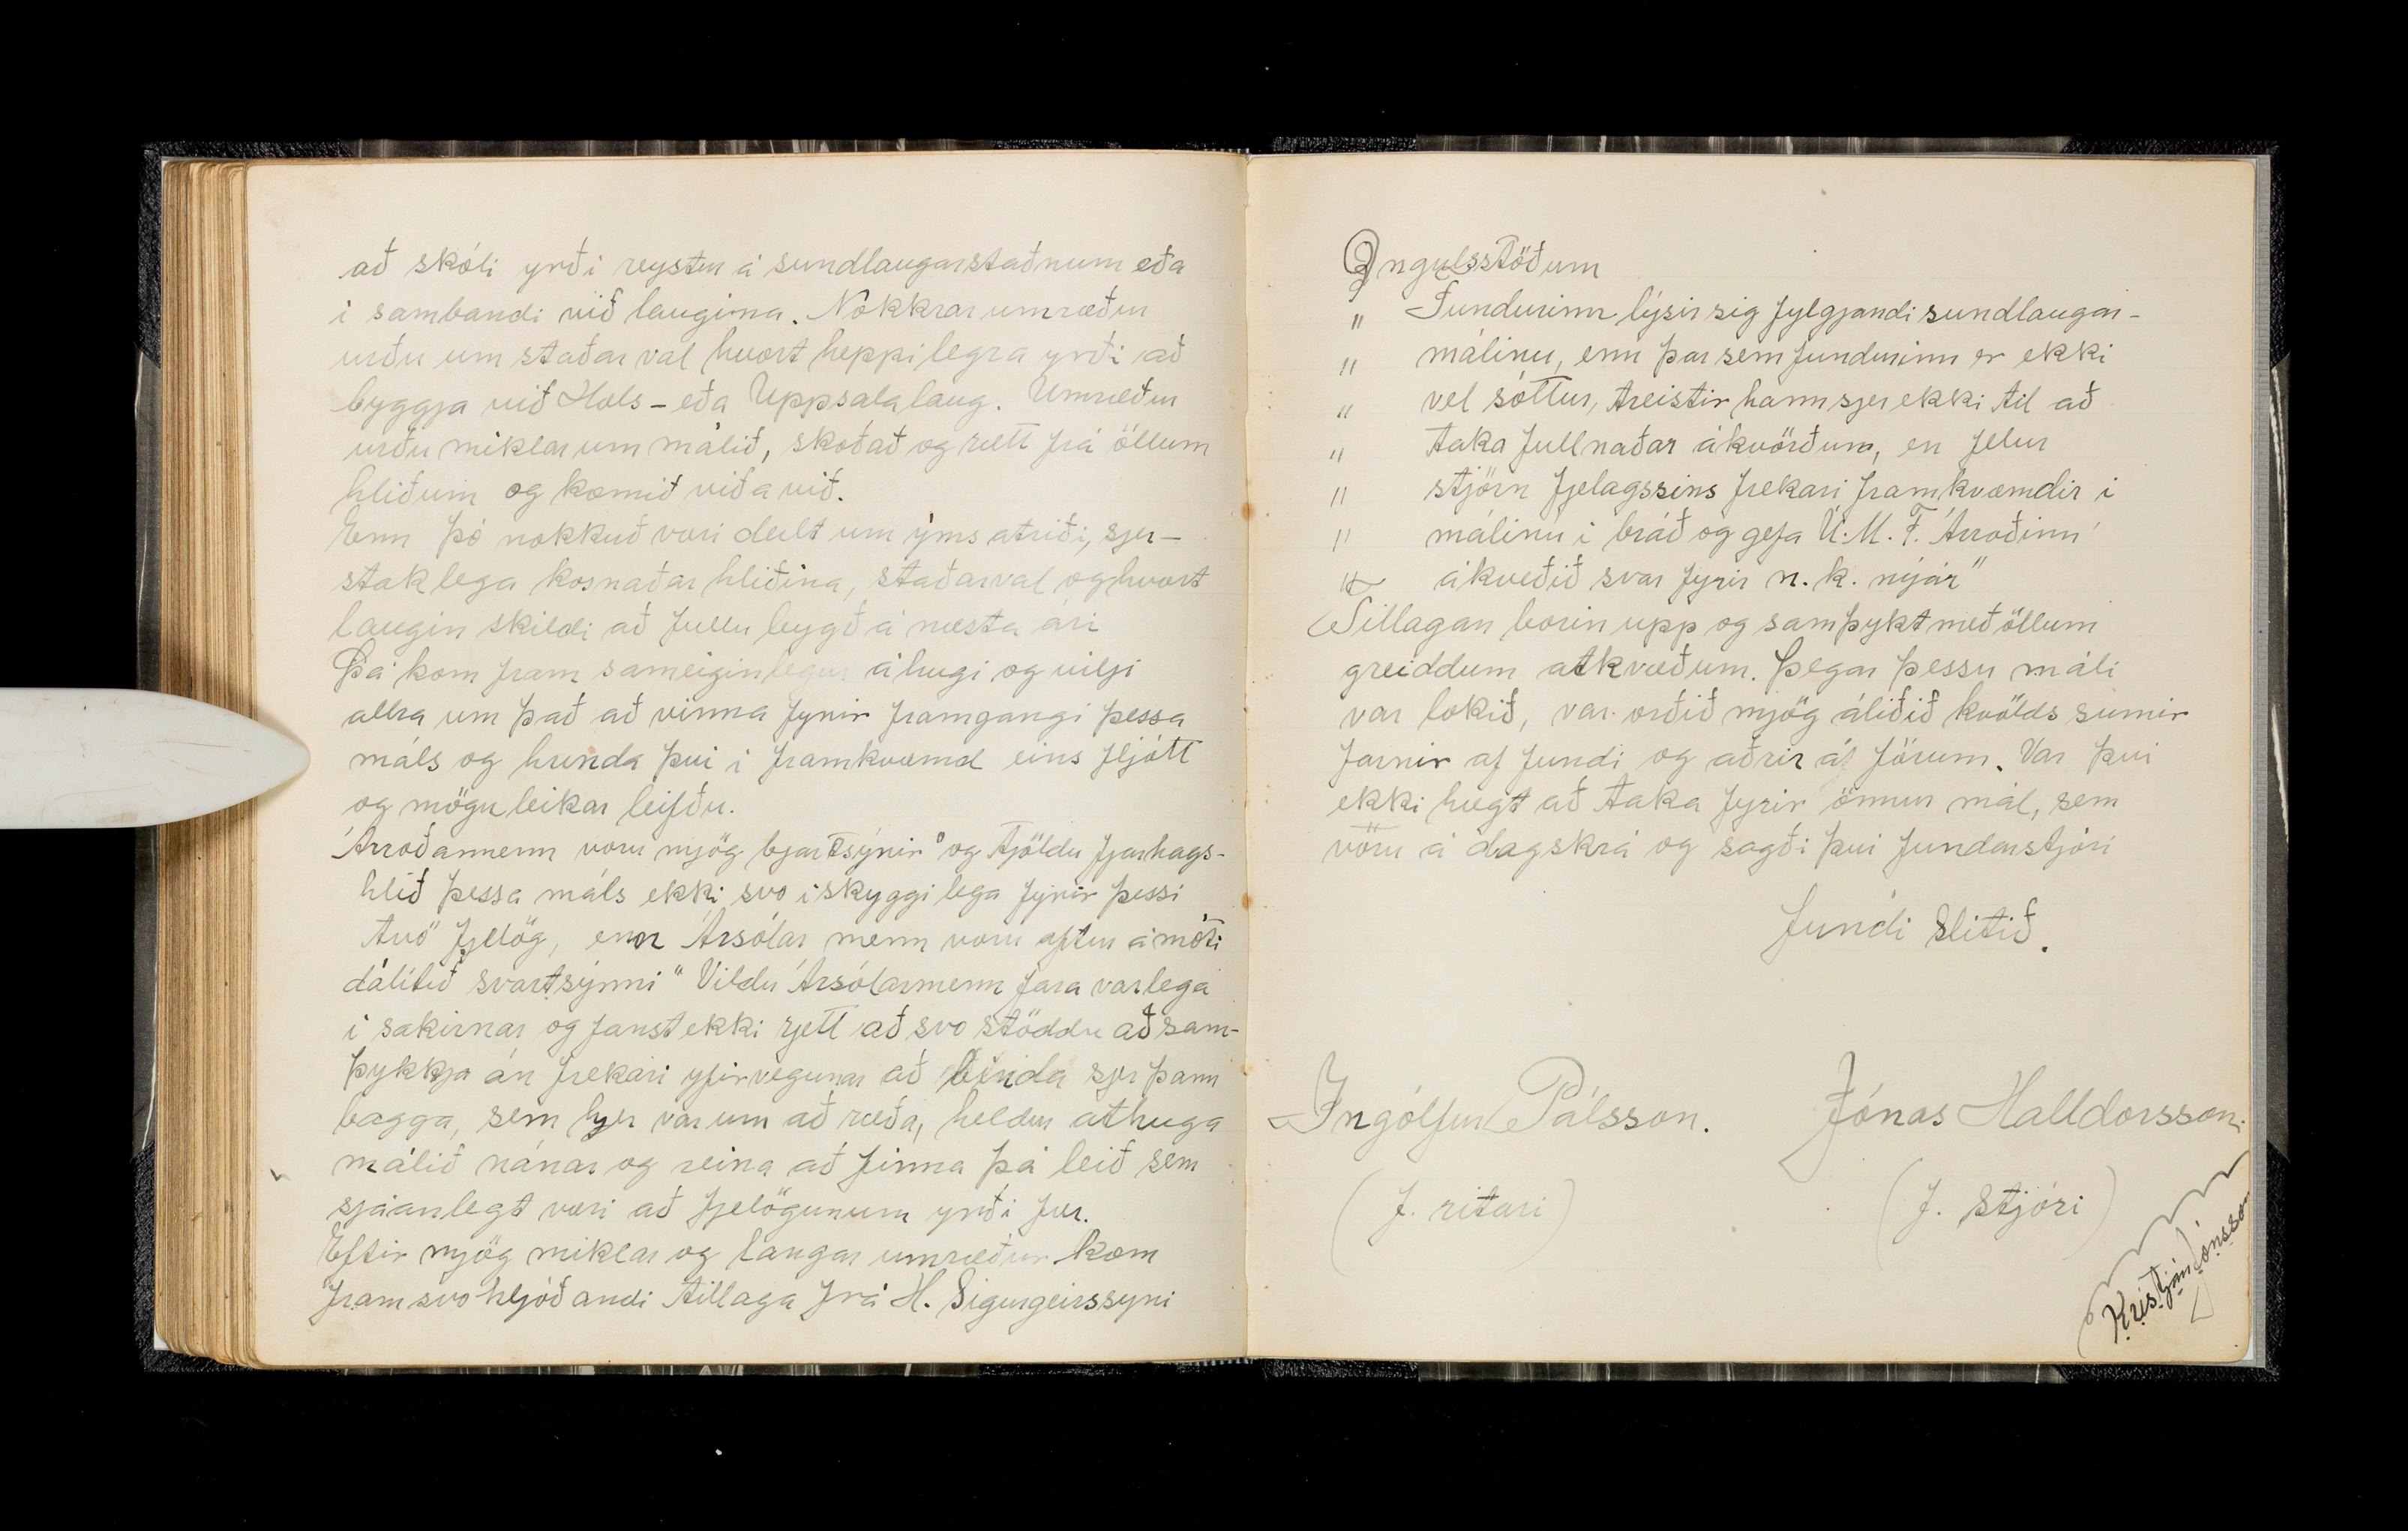 að skóli yrði reystur á sundlaugarstaðnum eða
í sambandi við laugina. Nokkrar umræður
urðu um staðar val hvort heppilegra yrði að
byggja við Hóls - eða Uppsalalaug. Umræður
urðu miklar um málið, skoðað og rætt frá öllum
hliðum og komið viða við.
Enn þó nokkuð væri deilt um ýms atriði, sjer-
staklega kosnaðar hliðina, staðarval og hvort
laugin skildi að fullu bygð á næsta ári
Þá kom fram sameiginlegur áhugi og vilji
allra um það að vinna fyrir framgangi þessa
máls og hrunda því í framkvæmd eins fljótt
og möguleikar leifðu.
Árroðamenn voru mjög bjartsýnir" og tjöldu fjarhags-
hlið þessa máls ekki svo ískyggilega fyrir þessi
tvö" fjelög, enn Ársólar menn voru aftur á móti
dálítið svartsýnni" Vildu Ársólarmenn fara varlega
í sakirnar og fanst ekki rjett að svo stöddu að sam-
þykkja án frekari yfirvegunar að binda sjer þann
bagga, sem hjer var um að ræða, heldur athuga
málið nánar og reina að finna þá leið sem
sjáanlegt væri að fjelögunum yrði fær.
Eftir mjög miklar og langar umræður kom
fram svo hljóðandi tillaga frá H. Sigurgeirssyni
Öngulsstöðum
" Fundurinn lýsir sig fylgjandi sundlaugar-
" málinu, enn þar sem fundurinn er ekki
" vel sóttur, treistir hann sjer ekki til að
" taka fullnaðar ákvörðum, en felur
" stjórn fjelagssins frekari framkvæmdir í
" málinu í bráð og gefa U.M.F. Árroðinn
" ákveðið svar fyrir n.k. nýár"
Tillagan borin upp og samþykt með öllum
greiddum atkvæðum. Þegar þessu máli
var lokið, var orðið mjög áliðið kvölds sumir
farnir af fundi og aðrir á förum. Var því
ekki hægt að taka fyrir önnur mál, sem
vöru á dagskrá og sagði því fundarstjóri
fundi slitið.
Ingólfur Pálsson. Jónas Halldorsson.
(f. ritari) (f. stjóri)
Kristján Jónsson